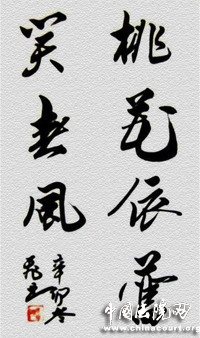 桃花依舊
笑春風
辛卯冬
中国法院网
www.chinacourt.org